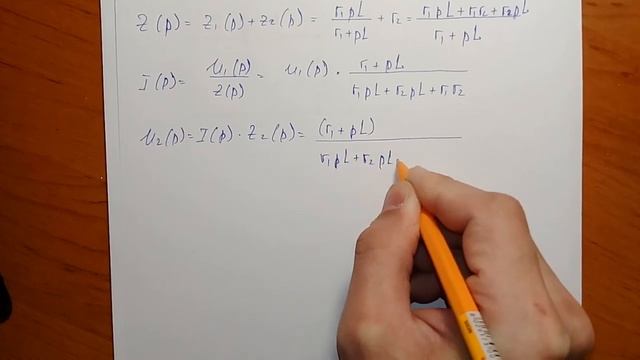 Z(p) = Z₁(p) + Z₂(p) = r₁pL / r₁+pL + r₂ = r₁pL + r₁r₂ + r₂pL / r₁ + pL
I(p) = U₁(p) / Z(p) = U₁(p) · r₁ + pL / r₁pL + r₂pL + r₁r₂
U₂(p) = I(p) · Z₂(p) = (r₁ + pL) / r₁pL + r₂pL